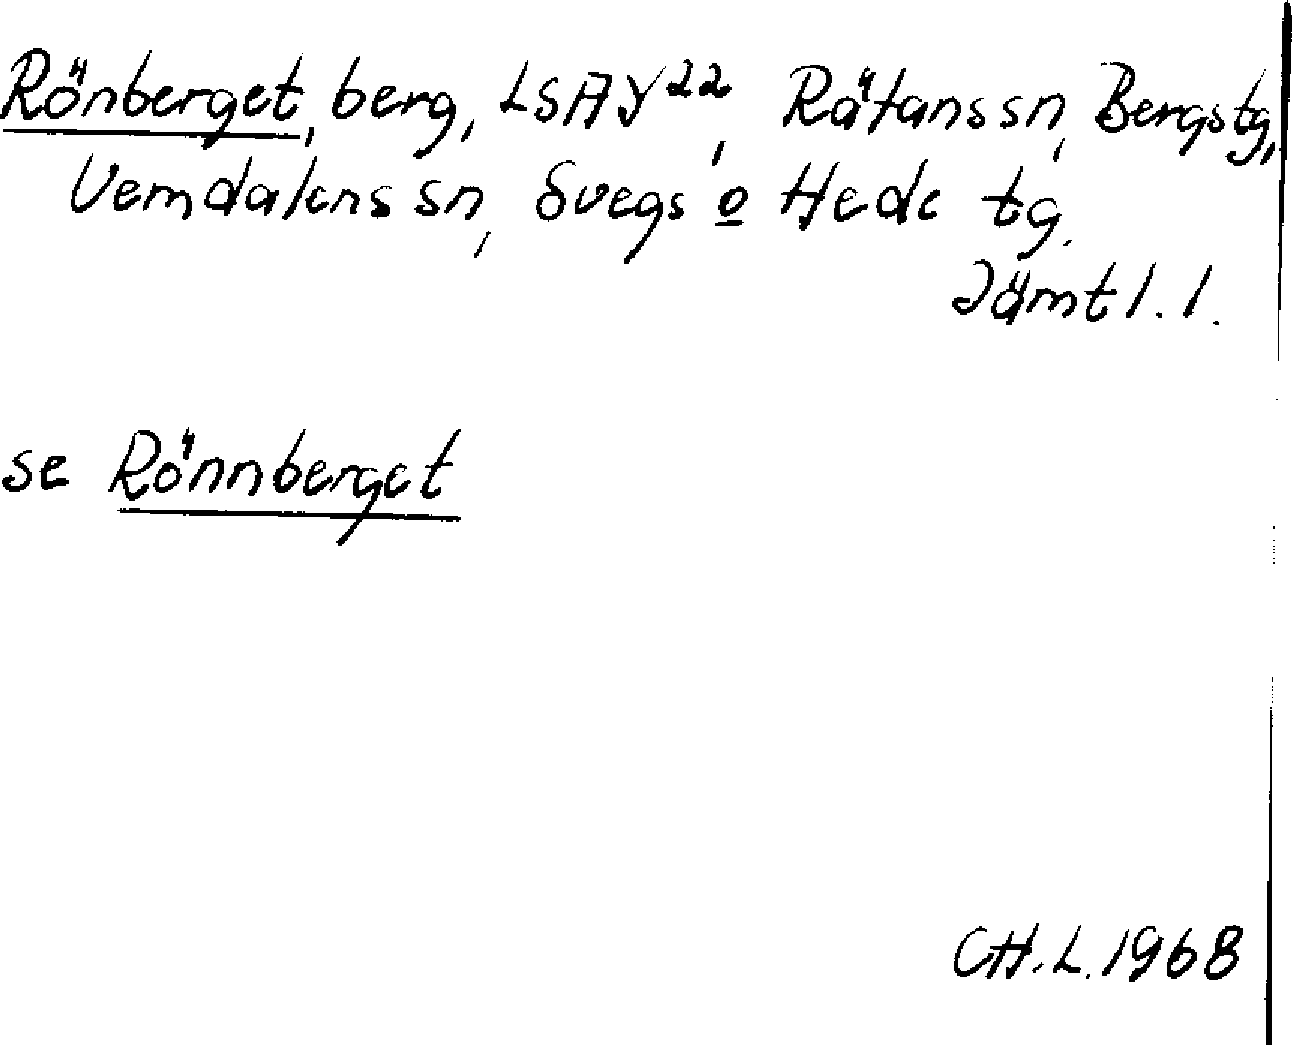 Rönberget, berg, LSA Y²², Rätans sn, Bergs tg,
Vemdalens sn, Svegs o Hede tg.
Jämtl. l.
se Rönnberget
CH.L. 1968